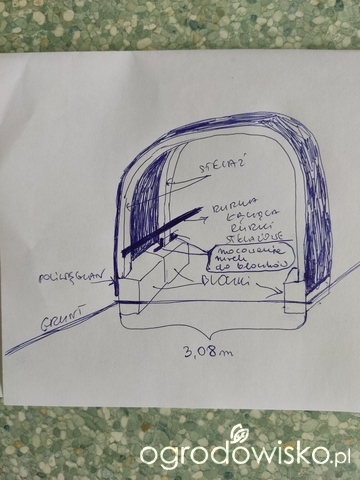 STELAŻ
RURKA
ŁĄCZĄCA
RURKI
STELAŻOWE
mocowanie
nurek
do bloczków
POLIWĘGLAN
BLOCZKI
GRUNT
3,08m
ogrodowisko.pl